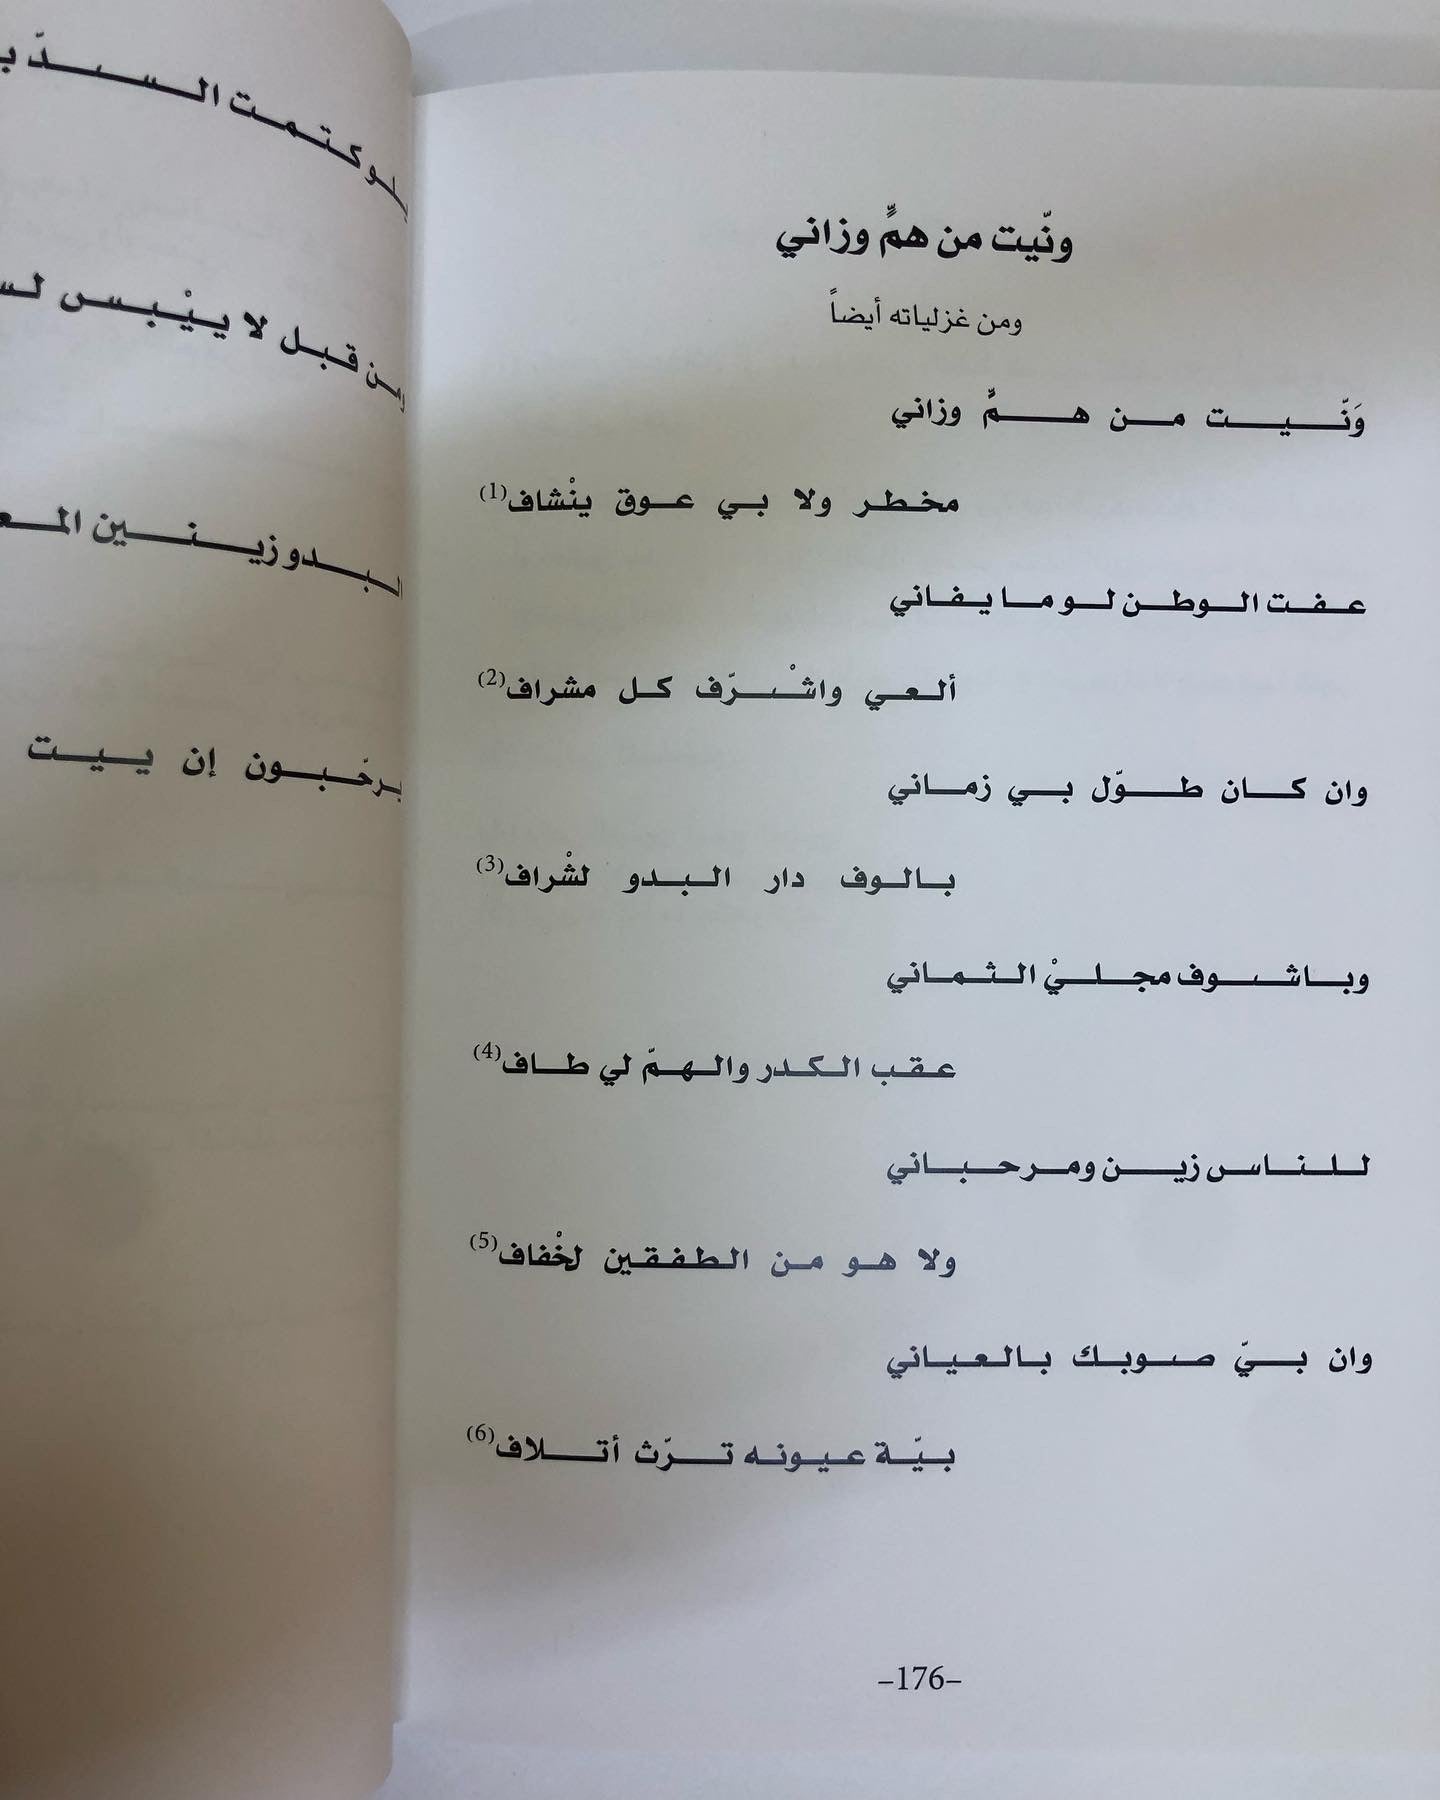 ونّيت من همٍّ وزاني
ومن غزلياته أيضاً
وَنّيت من همٍّ وزاني
مخطر ولا بي عوق ينْشاف(1)
عفت الوطن لو ما يفاني
ألعي واشْرّف كل مشراف(2)
وان كان طوّل بي زماني
بالوف دار البدو لشْراف(3)
وباشوف مجليْ الثماني
عقب الكدر والهمّ لي طاف(4)
للناس زين ومرحباني
ولا هو من الطفقين لخْفاف(5)
وان بيّ صوبك بالعياني
بيّة عيونه ترّث أتلاف(6)
–176–
كتمت السدّ
من قبل لا ييْبس
البدو زينين
يرحّبون إن ييت